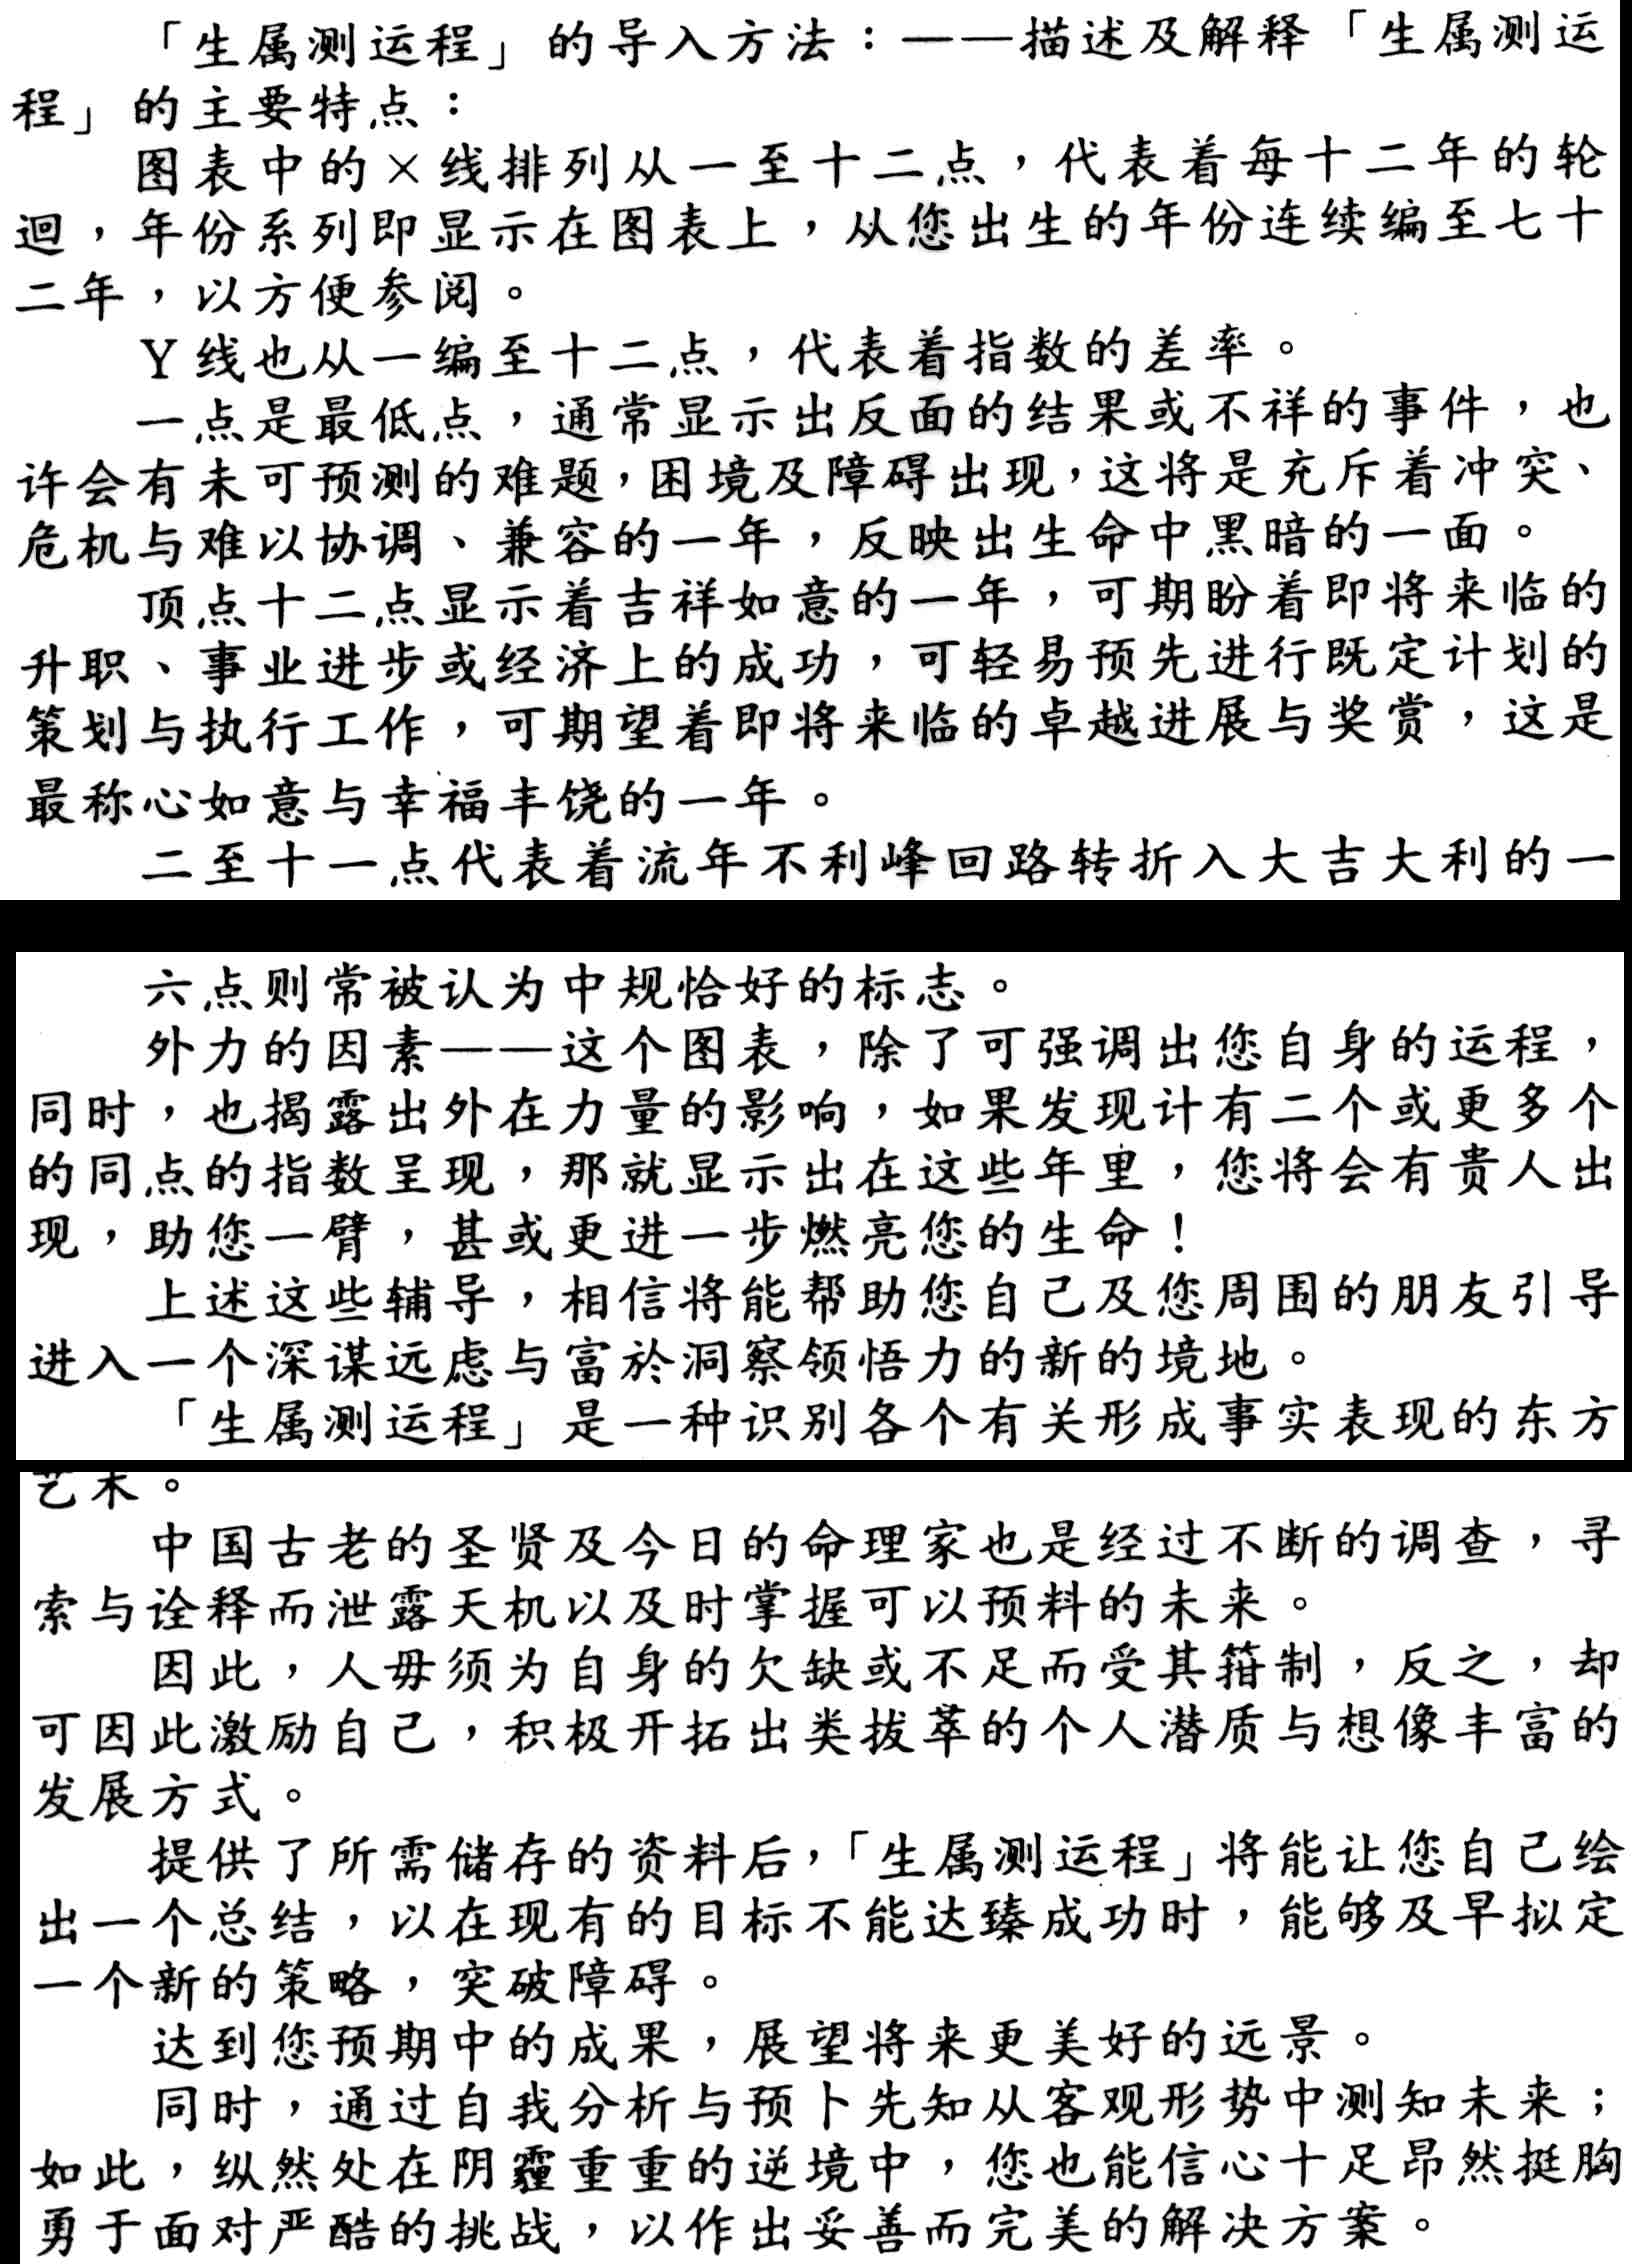 「生属测运程」的导入方法：——描述及解释「生属测运
程」的主要特点：
图表中的×线排列从一至十二点，代表着每十二年的轮
迴，年份系列即显示在图表上，从您出生的年份连续编至七十
二年，以方便参阅。
Y线也从一编至十二点，代表着指数的差率。
一点是最低点，通常显示出反面的结果或不祥的事件，也
许会有未可预测的难题，困境及障碍出现，这将是充斥着冲突、
危机与难以协调、兼容的一年，反映出生命中黑暗的一面。
顶点十二点显示着吉祥如意的一年，可期盼着即将来临的
升职、事业进步或经济上的成功，可轻易预先进行既定计划的
策划与执行工作，可期望着即将来临的卓越进展与奖赏，这是
最称心如意与幸福丰饶的一年。
二至十一点代表着流年不利峰回路转折入大吉大利的一
六点则常被认为中规恰好的标志。
外力的因素——这个图表，除了可强调出您自身的运程，
同时，也揭露出外在力量的影响，如果发现计有二个或更多个
的同点的指数呈现，那就显示出在这些年里，您将会有贵人出
现，助您一臂，甚或更进一步燃亮您的生命！
上述这些辅导，相信将能帮助您自己及您周围的朋友引导
进入一个深谋远虑与富於洞察领悟力的新的境地。
「生属测运程」是一种识别各个有关形成事实表现的东方
艺术。
中国古老的圣贤及今日的命理家也是经过不断的调查，寻
索与诠释而泄露天机以及时掌握可以预料的未来。
因此，人毋须为自身的欠缺或不足而受其箝制，反之，却
可因此激励自己，积极开拓出类拔萃的个人潜质与想像丰富的
发展方式。
提供了所需储存的资料后，「生属测运程」将能让您自己绘
出一个总结，以在现有的目标不能达臻成功时，能够及早拟定
一个新的策略，突破障碍。
达到您预期中的成果，展望将来更美好的远景。
同时，通过自我分析与预卜先知从客观形势中测知未来；
如此，纵然处在阴霾重重的逆境中，您也能信心十足昂然挺胸
勇于面对严酷的挑战，以作出妥善而完美的解决方案。